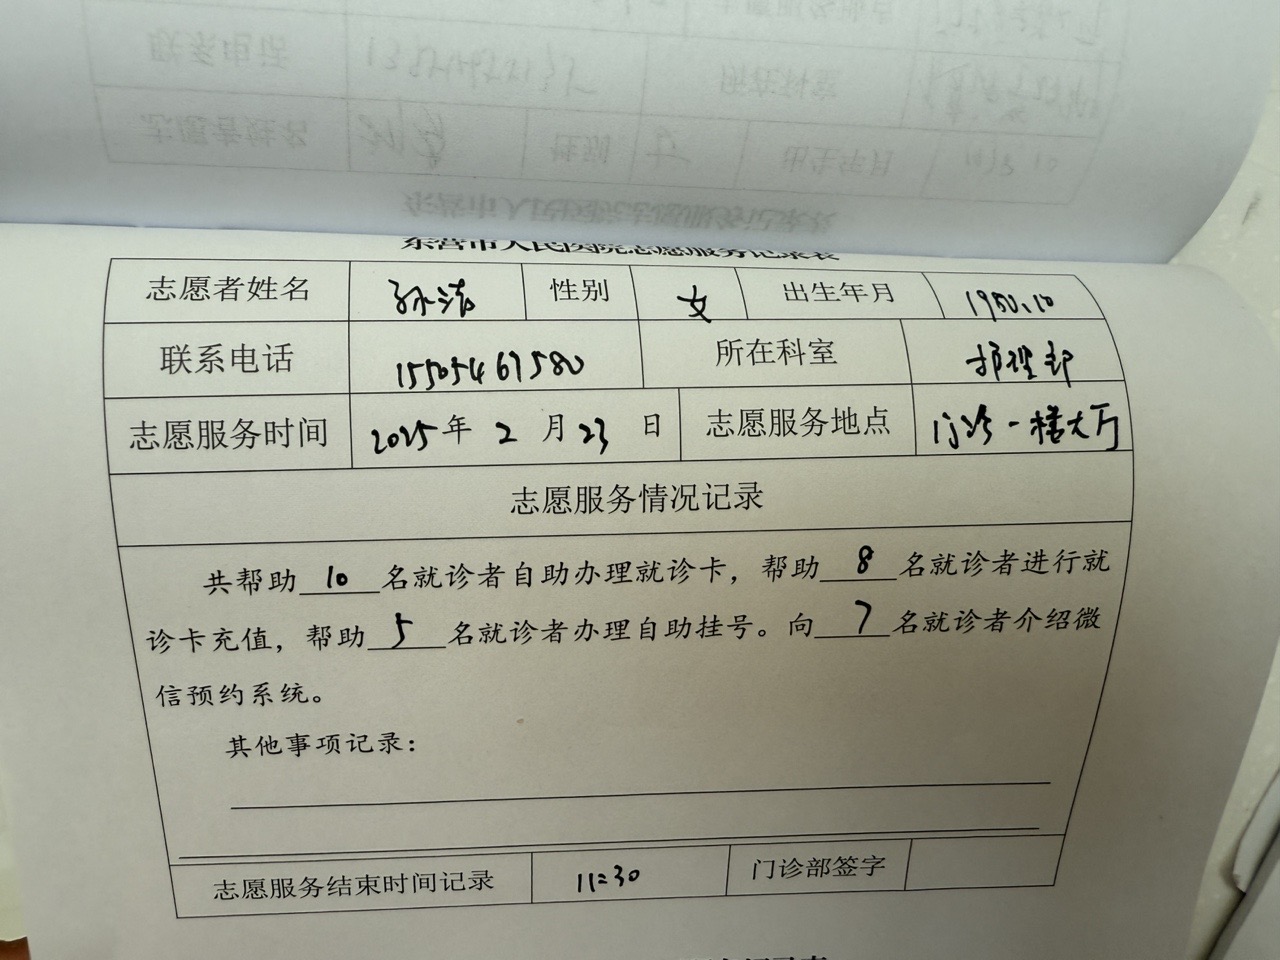 东营市人民医院志愿服务记录表
志愿者姓名 孙洁 性别 女 出生年月 1980.10
联系电话 15505461580 所在科室 护理部
志愿服务时间 2025年 2 月 23 日 志愿服务地点 门诊一楼大厅
志愿服务情况记录
共帮助 10 名就诊者自助办理就诊卡，帮助 8 名就诊者进行就
诊卡充值，帮助 5 名就诊者办理自助挂号。向 7 名就诊者介绍微
信预约系统。
其他事项记录：
志愿服务结束时间记录 11:30 门诊部签字